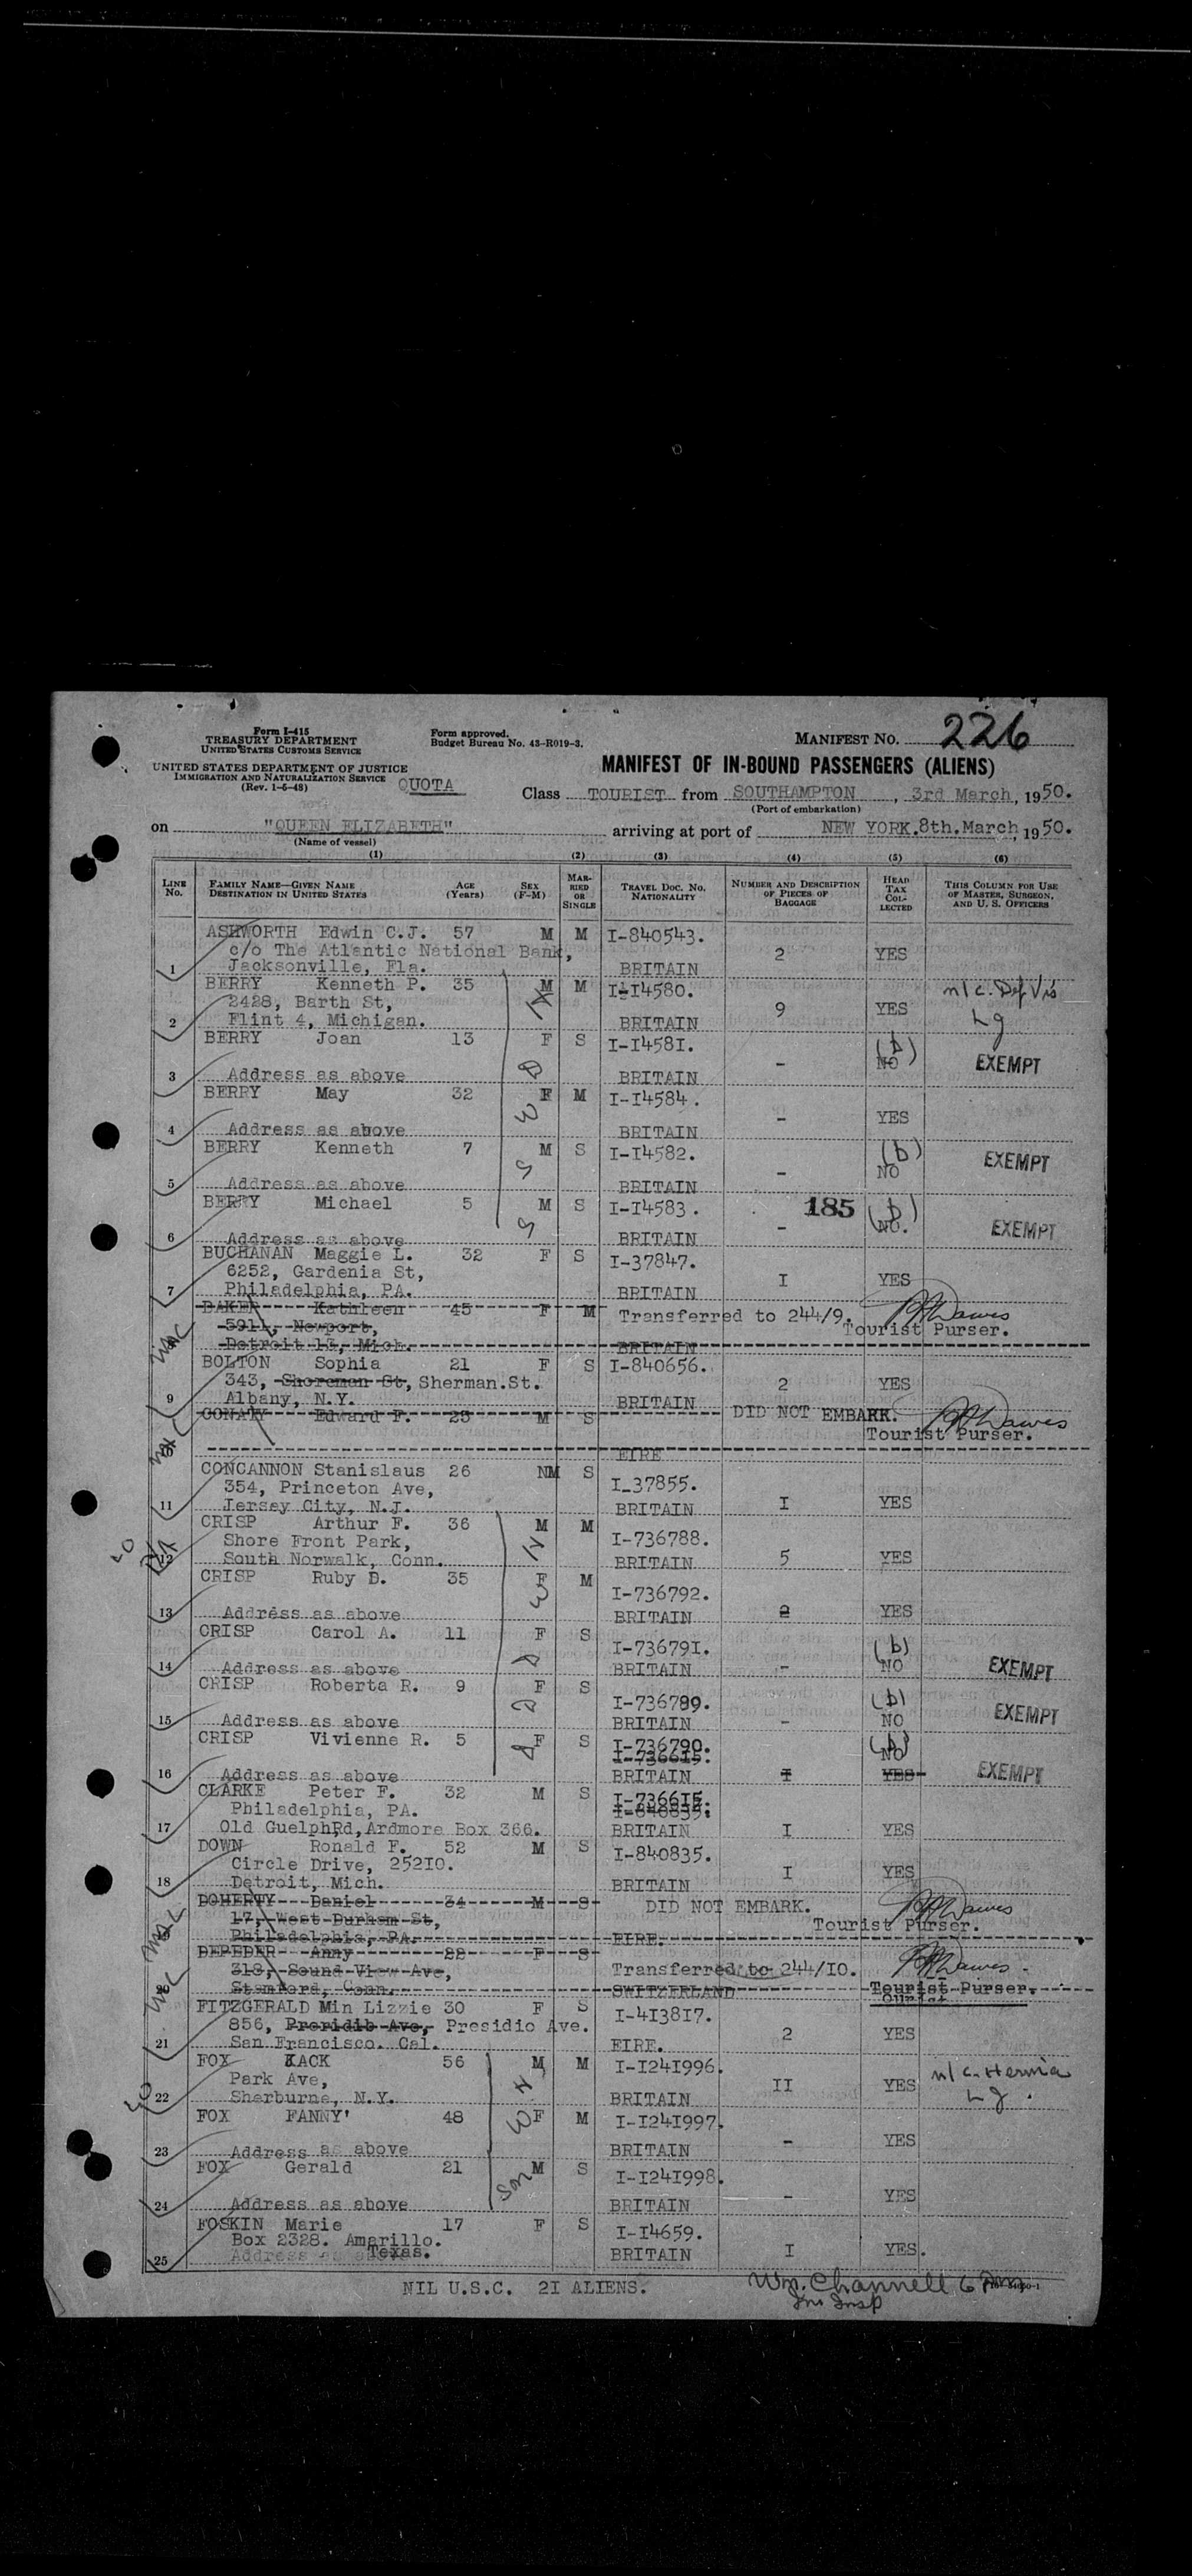 Form I-415
TREASURY DEPARTMENT
UNITED STATES CUSTOMS SERVICE
Form approved.
Budget Bureau No. 43-R019-3.
MANIFEST NO. 226
UNITED STATES DEPARTMENT OF JUSTICE
IMMIGRATION AND NATURALIZATION SERVICE
(Rev. 1-6-48)
QUOTA
MANIFEST OF IN-BOUND PASSENGERS (ALIENS)
Class TOURIST from SOUTHAMPTON, 3rd March, 1950.
(Port of embarkation)
on "QUEEN ELIZABETH" arriving at port of NEW YORK. 8th. March, 1950.
(Name of vessel)
(1) (2) (3) (4) (5) (6)
LINE No. FAMILY NAME—GIVEN NAME DESTINATION IN UNITED STATES AGE (Years) SEX (F-M) MARRIED OR SINGLE TRAVEL DOC. NO. NATIONALITY NUMBER AND DESCRIPTION OF PIECES OF BAGGAGE HEAD TAX COLLECTED THIS COLUMN FOR USE OF MASTER, SURGEON, AND U. S. OFFICERS
ASHWORTH Edwin C.J. 57 M M I-840543.
c/o The Atlantic National Bank, 2 YES
1 Jacksonville, Fla. BRITAIN
BERRY Kenneth P. 35 M M I-I4580. n/c. Def Vis
2428, Barth St, 9 YES Lg
2 Flint 4, Michigan. BRITAIN
BERRY Joan 13 F S I-I4581. (b)
NO EXEMPT
3 Address as above D BRITAIN -
BERRY May 32 F M I-I4584.
W - YES
4 Address as above BRITAIN
BERRY Kenneth 7 M S I-I4582. (b) EXEMPT
S - NO
5 Address as above BRITAIN
BERRY Michael 5 M S I-I4583. 185 (b)
S - NO. EXEMPT
6 Address as above BRITAIN
BUCHANAN Maggie L. 32 F S I-37847.
6252, Gardenia St, I YES
7 Philadelphia, PA. BRITAIN
BAKER Kathleen 45 F M Transferred to 244/9.
5911, Newport, Tourist Purser.
Detroit 13, Mich. BRITAIN
BOLTON Sophia 21 F S I-840656.
343, Shoreman St, Sherman.St. 2 YES
9 Albany, N.Y. BRITAIN
CONARY Edward F. 25 M S DID NOT EMBARK.
Tourist Purser.
10 EIRE
CONCANNON Stanislaus 26 NM S I_37855.
354, Princeton Ave,
11 Jersey City, N.J. BRITAIN I YES
CRISP Arthur F. 36 M M I-736788.
Shore Front Park,
12 South Norwalk, Conn. BRITAIN 5 YES
CRISP Ruby D. 35 F M I-736792.
W
13 Address as above BRITAIN 2 YES
CRISP Carol A. 11 F S I-736791. (b)
14 Address as above D BRITAIN - NO EXEMPT
CRISP Roberta R. 9 F S I-736789. (b)
15 Address as above D BRITAIN - NO EXEMPT
CRISP Vivienne R. 5 F S I-736790. (b)
I-736615. NO
16 Address as above D BRITAIN I YES EXEMPT
CLARKE Peter F. 32 M S I-736615.
Philadelphia, PA. I-840835.
17 Old Guelph Rd, Ardmore Box 366. BRITAIN I YES
DOWN Ronald F. 52 M S I-840835.
Circle Drive, 25210. I YES
18 Detroit, Mich. BRITAIN
DOHERTY Daniel 34 M S DID NOT EMBARK.
17, West Durham St, Tourist Purser.
Philadelphia, PA. EIRE.
DEPEDER Anny 22 F S
318, Sound View Ave, Transferred to 244/10.
20 Stamford, Conn. SWITZERLAND Tourist Purser.
FITZGERALD Min Lizzie 30 F S I-413817.
856, Preridib Ave, Presidio Ave. 2 YES
21 San Francisco. Cal. EIRE.
FOX JACK 56 M M I-I241996. n/c. Hernia
Park Ave, II YES Lg.
22 Sherburne, N.Y. BRITAIN
FOX FANNY 48 F M I-I241997.
W - YES
23 Address as above BRITAIN
FOX Gerald 21 M S I-I241998.
Son - YES
24 Address as above BRITAIN
FOSKIN Marie 17 F S I-I4659.
Box 2328. Amarillo.
25 Address as above Texas. BRITAIN I YES.
NIL U.S.C. 21 ALIENS. Wm. Channell
Im Insp